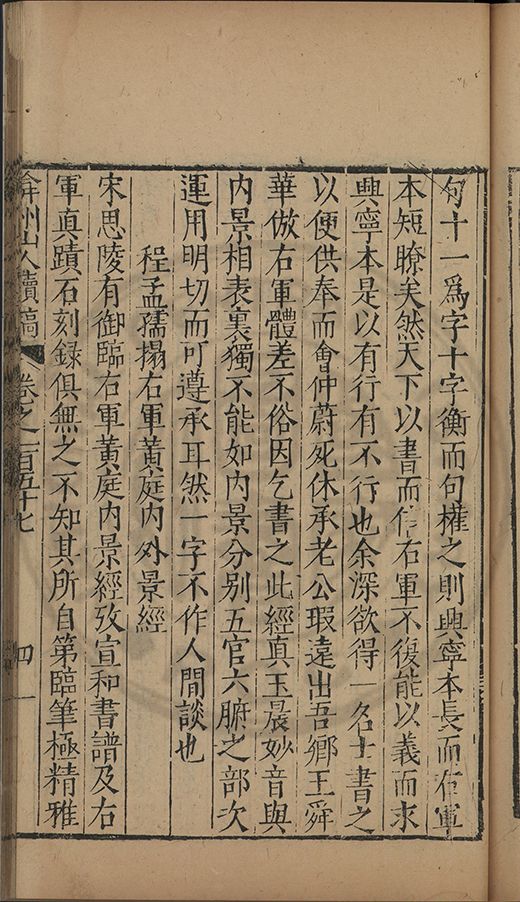 句十一爲字十字衡而句權之則興寧本長而右軍
本短瞭矣然天下以書而信右軍不復能以義而求
興寧本是以有行有不行也余深欲得一名士書之
以便供奉而會仲蔚死休承老公瑕遠出吾鄉王舜
華倣右軍體差不俗因乞書之此經真玉晨妙音與
内景相表裏獨不能如内景分别五官六腑之部次
運用明切而可遵承耳然一字不作人間談也
程孟孺搨右軍黃庭内外景經
宋思陵有御臨右軍黃庭内景經攷宣和書譜及右
軍真蹟石刻録俱無之不知其所自第臨筆極精雅
弇州山人續稿 卷之一百五十七 四